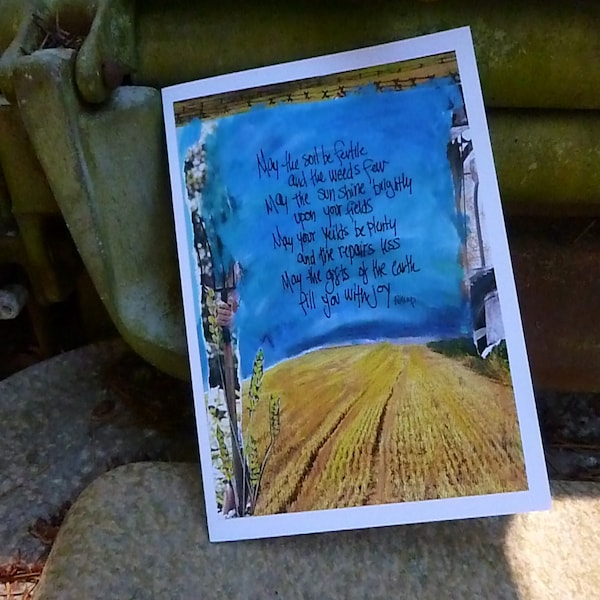 May the soil be fertile
and the weeds few
May the sun shine brightly
upon your fields
May your Yeilds be plenty
and the repairs less
May the gifts of the earth
fill you with Joy